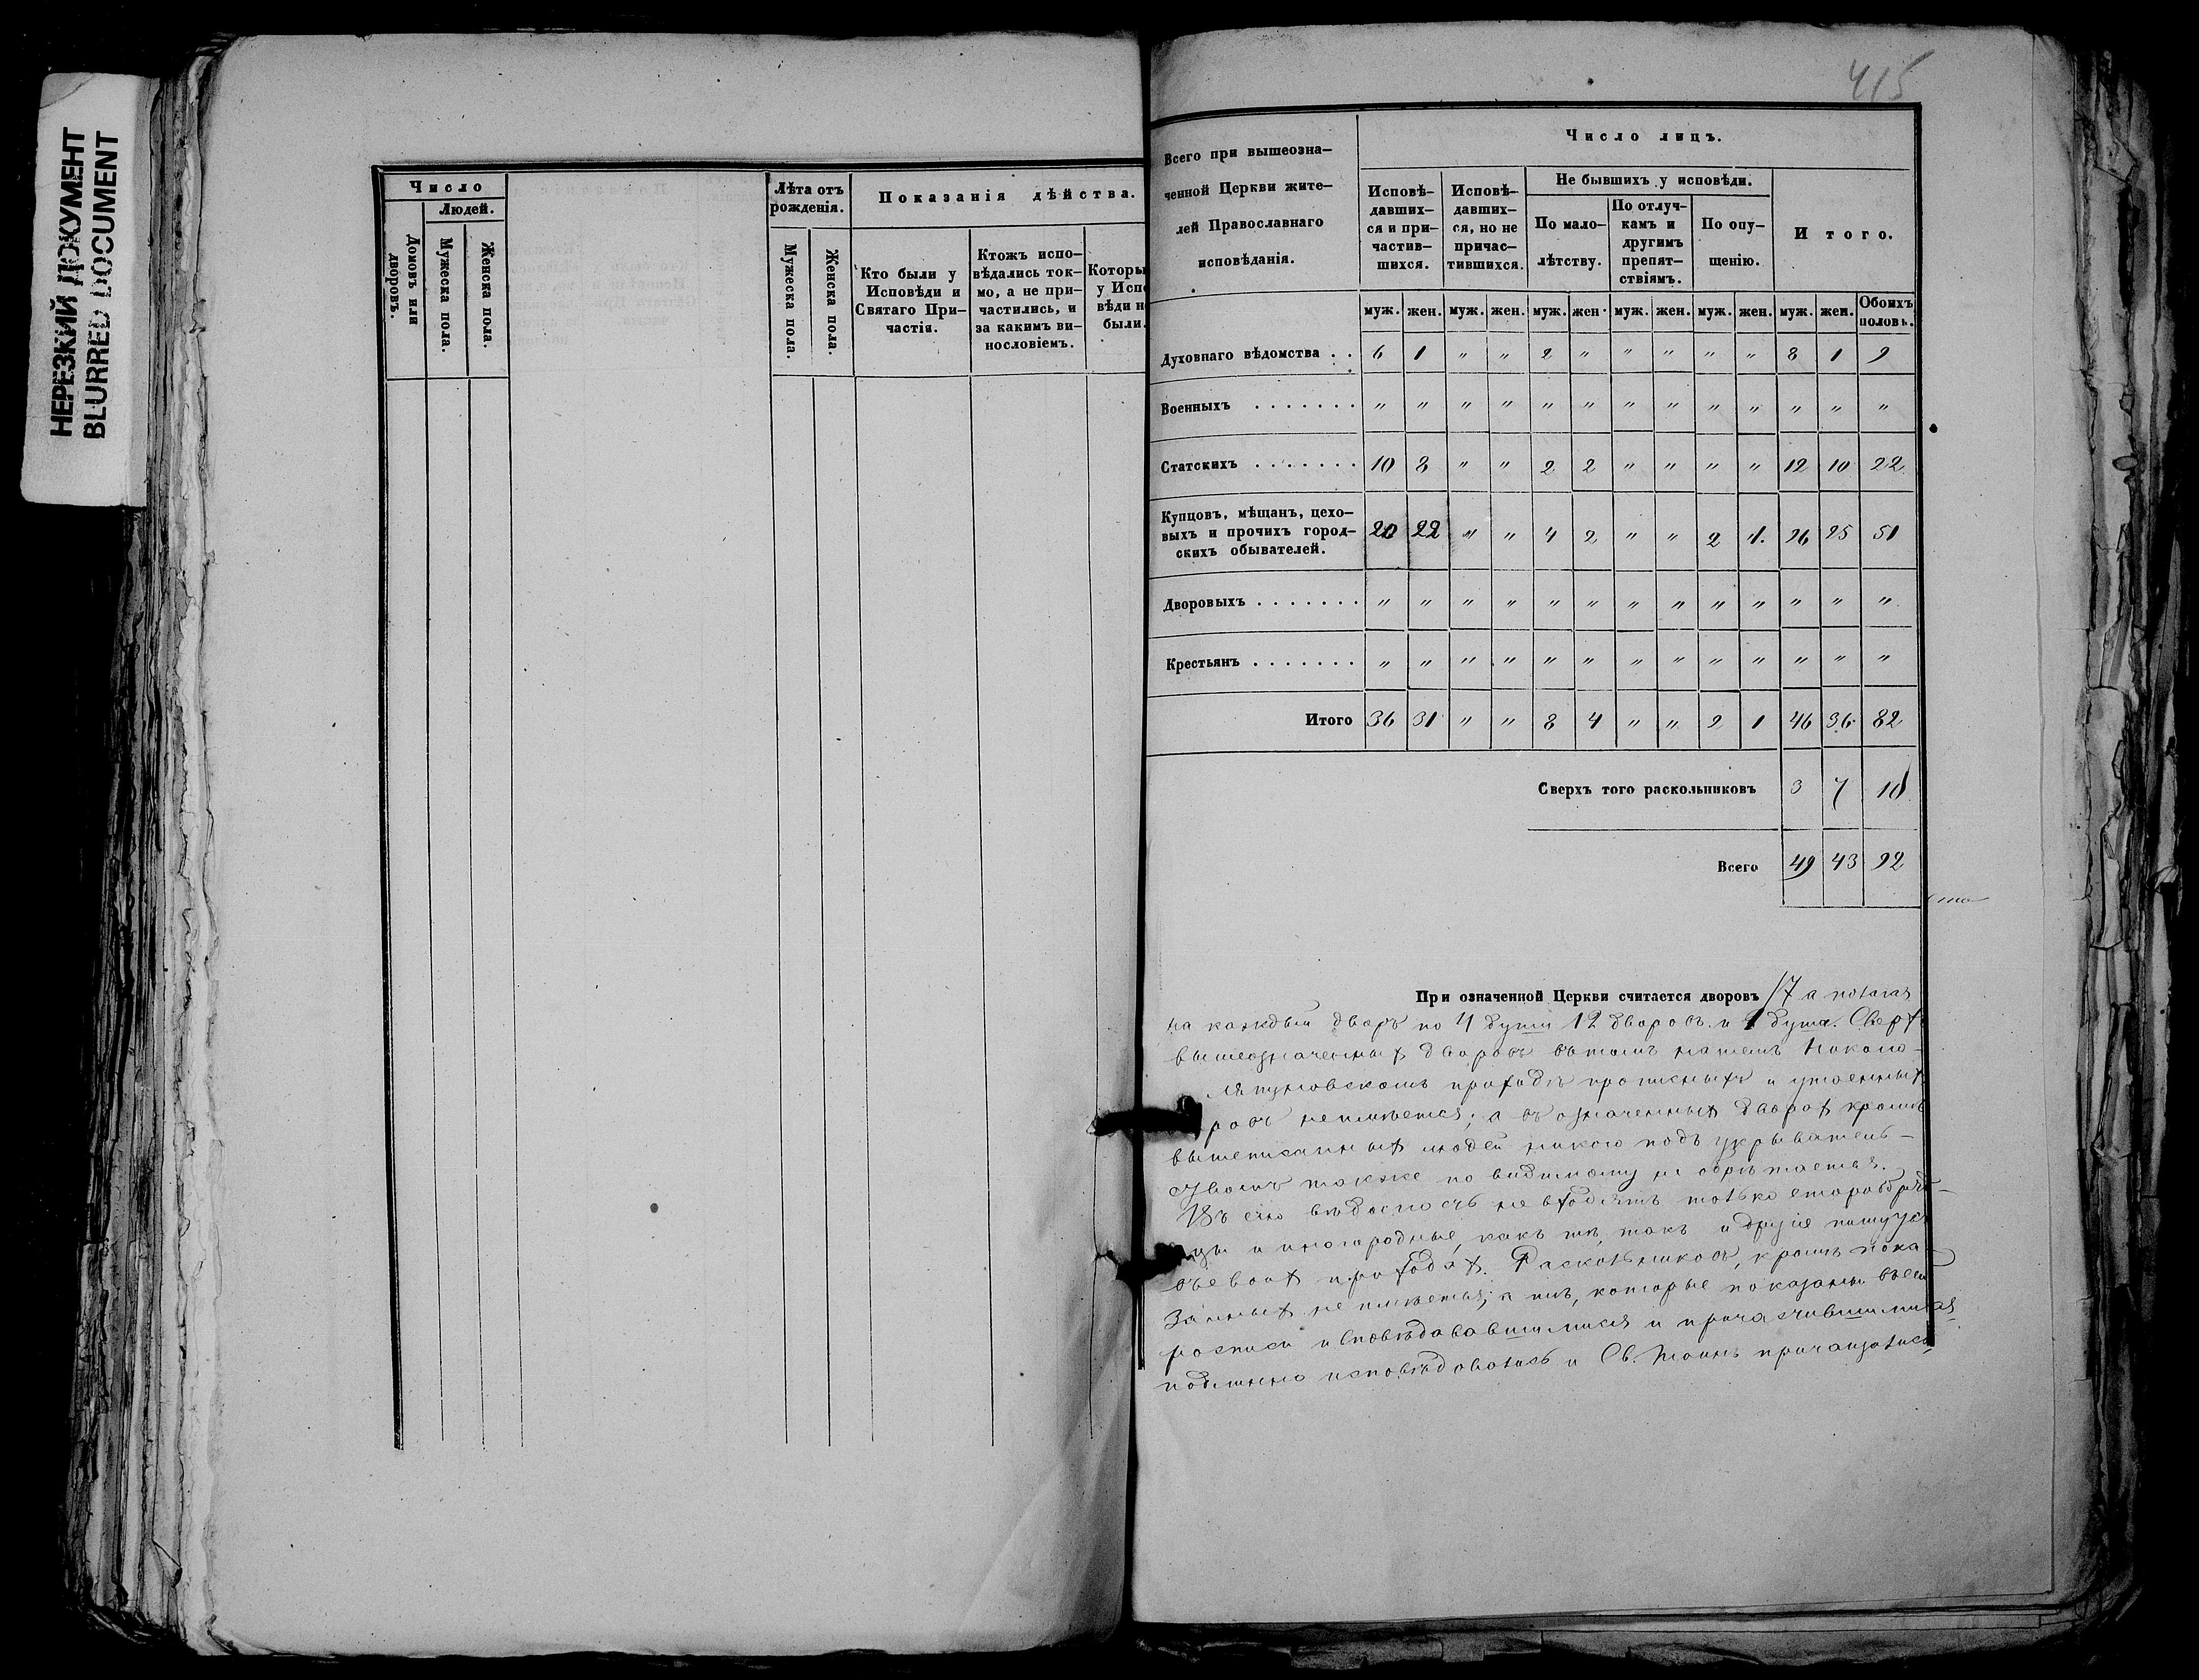 НЕРЕЗКИЙ ДОКУМЕНТ
BLURRED DOCUMENT
Число
Людей.
Домовъ или дворовъ.
Мужеска пола.
Женска пола.
Лѣта отъ рожденія.
Мужеска пола.
Женска пола.
Показанія дѣйства.
Кто были у Исповѣди и Святаго Причастія.
Ктожъ исповѣдались токмо, а не причастились, и за какимъ винословіемъ.
Которы
у Испо
вѣди н
были.
415
Всего при вышеозна-
ченной Церкви жите-
лей Православнаго
исповѣданія.
Число лицъ.
Исповѣ-
давших-
ся и при-
частив-
шихся.
Исповѣ-
давших-
ся, но не
причас-
тившихся.
Не бывшихъ у исповѣди.
По мало-
лѣтству.
По отлуч-
камъ и
другимъ
препят-
ствіямъ.
По опу-
щенію.
Итого.
муж. жен. муж. жен. муж. жен. муж. жен. муж. жен. муж. жен. Обоихъ половъ.
Духовнаго вѣдомства . . 6 1 " " 2 " " " " " 8 1 9
Военныхъ . . . . . . . " " " " " " " " " " " " "
Статскихъ . . . . . . . 10 8 " " 2 2 " " " " 12 10 22
Купцовъ, мѣщанъ, цехо-
выхъ и прочихъ город-
скихъ обывателей. 20 22 " " 4 2 " " 2 1. 26 25 51
Дворовыхъ . . . . . . . " " " " " " " " " " " " "
Крестьянъ . . . . . . . " " " " " " " " " " " " "
Итого 36 31 " " 8 4 " " 2 1 46 36 82
Сверхъ того раскольниковъ 3 7 10
Всего 49 43 92
При означенной Церкви считается дворовъ 17 а полагая
на каждый дворъ по 4 души 12 дворовъ и 1 душа. Сверх
вышеозначенных дворовъ въ томъ нашемъ
приходѣ прописныхъ и утаенных
ровъ неимѣется; а въ означенных дворах кромѣ
вышеписанных людей никого подъ укрыватель-
ствомъ также по видимому не обрѣтается.
Въ сію вѣдомость не входятъ только старообряд-
цы и иногородные, какъ тѣ, такъ и другіе пишутся
въ своих приходах. Раскольниковъ, кромѣ пока-
занных не имѣется; а тѣ, которые показаны въ сей
росписи исповѣдававшимися и причастившимися
подлинно исповѣдовались и Св. Таинъ причащались